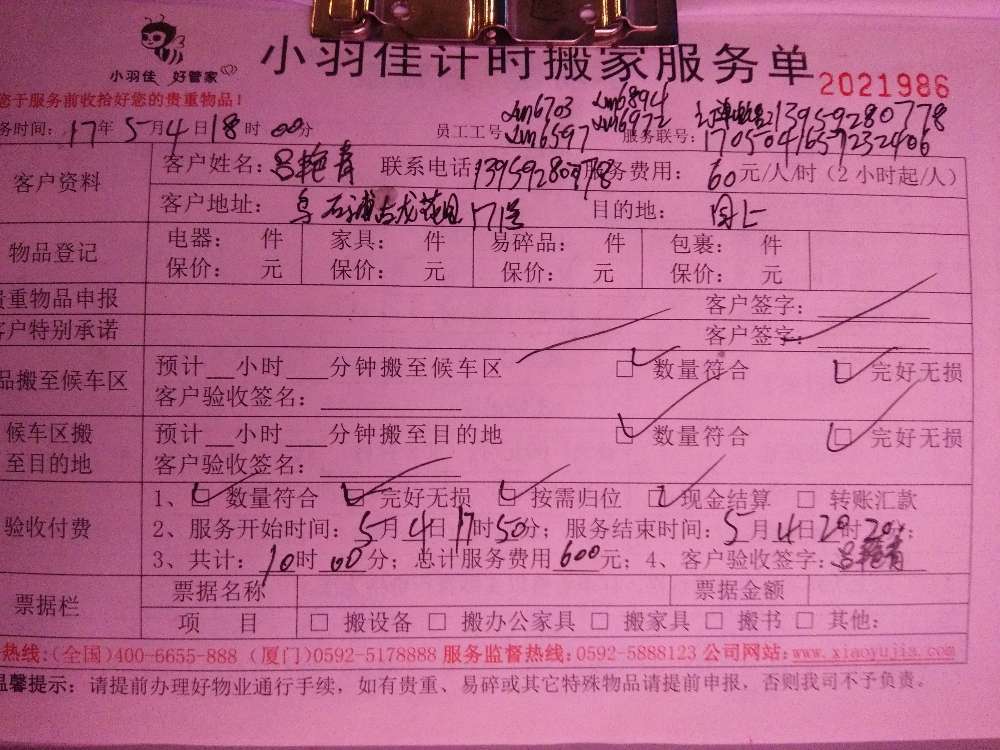 小羽佳 好管家
小羽佳计时搬家服务单
2021986
您于服务前收拾好您的贵重物品!
务时间: 17年5月4日18时00分
员工工号: Lm6703 Lm6894
Lm6597 Lm6972
13959280778
服务联号: 1705041657232406
客户资料
客户姓名: 吕艳青 联系电话: 13959280778 服务费用: 60元/人/时(2小时起/人)
客户地址: 石浦古龙花园171号 目的地: 同上
物品登记
电器: 件 家具: 件 易碎品: 件 包裹: 件
保价: 元 保价: 元 保价: 元 保价: 元
贵重物品申报 客户签字:
客户特别承诺 客户签字:
品搬至候车区
预计 小时 分钟搬至候车区 □ 数量符合 □ 完好无损
客户验收签名:
候车区搬至目的地
预计 小时 分钟搬至目的地 □ 数量符合 □ 完好无损
客户验收签名:
验收付费
1、□ 数量符合 □ 完好无损 □ 按需归位 □ 现金结算 □ 转账汇款
2、服务开始时间: 5月4日17时50分; 服务结束时间: 5月4日20时20分;
3、共计: 10时00分; 总计服务费用600元; 4、客户验收签字: 吕艳青
票据栏
票据名称 票据金额
项 目 □ 搬设备 □ 搬办公家具 □ 搬家具 □ 搬书 □ 其他:
热线:(全国)400-6655-888 (厦门)0592-5178888 服务监督热线:0592-5888123 公司网站:www.xiaoyujia.com
温馨提示: 请提前办理好物业通行手续,如有贵重、易碎或其它特殊物品请提前申报,否则我司不予负责。